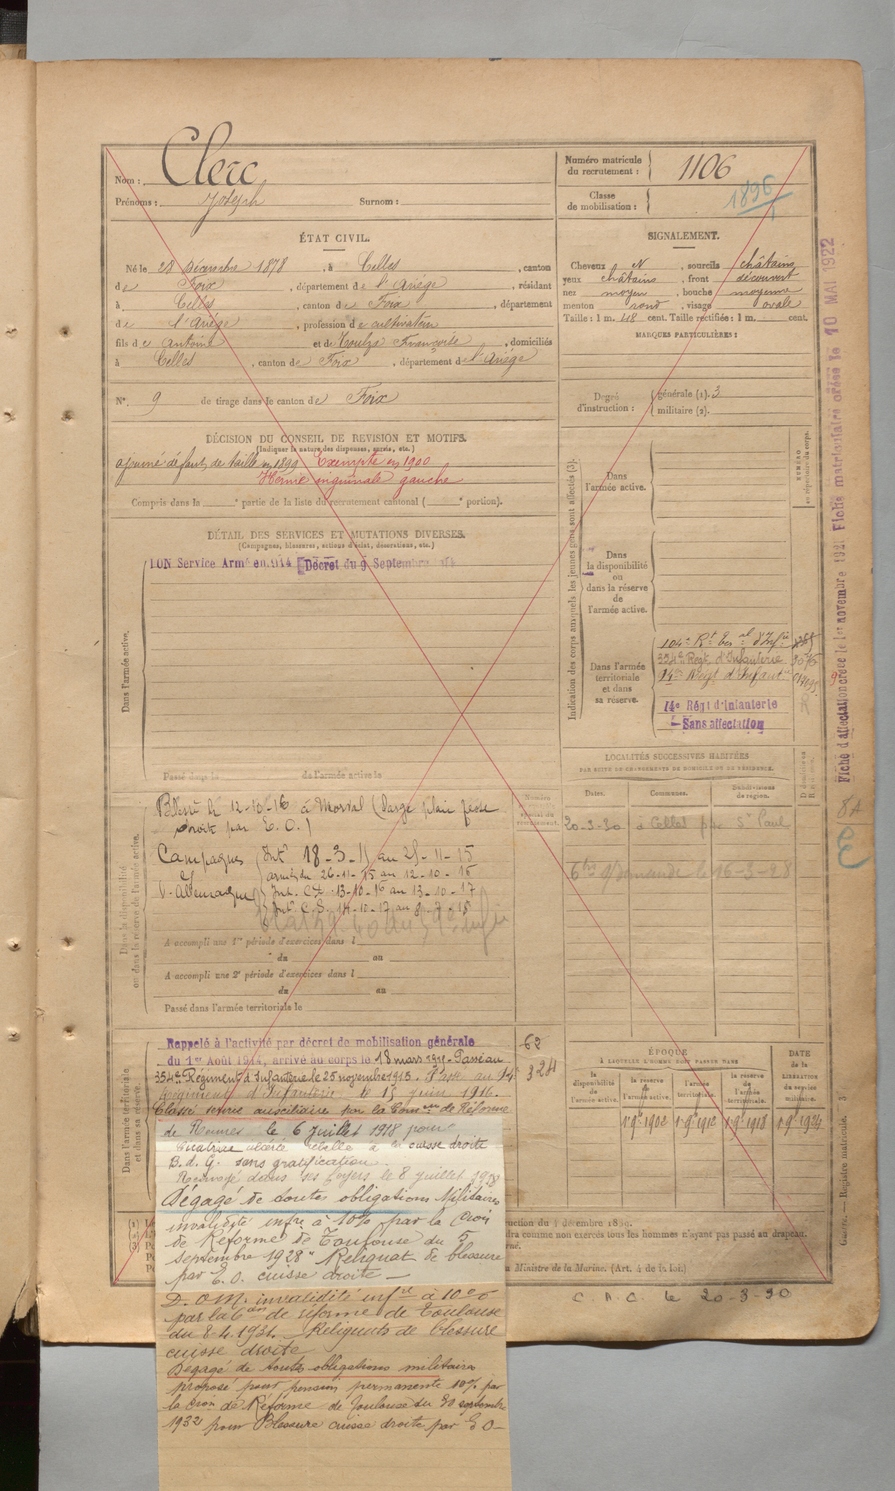 Nom : Clerc
Prénoms : Joseph Surnom :
Numéro matricule du recrutement : 1106
Classe de mobilisation : 1896
ÉTAT CIVIL.
Né le 28 Décembre 1878, à Celles, canton
de Foix, département de l'Ariège, résidant
à Celles, canton de Foix, département
de l'Ariège, profession de cultivateur
fils de Antoine et de Françoise, domiciliés
à Celles, canton de Foix, département de l'Ariège
N° 9 de tirage dans le canton de Foix
SIGNALEMENT.
Cheveux N, sourcils châtains
yeux châtains, front découvert
nez moyen, bouche moyenne
menton rond, visage ovale
Taille : 1 m. 48 cent. Taille rectifiée : 1 m. cent.
MARQUES PARTICULIÈRES :
Degré d'instruction : générale (1). 3
militaire (2).
DÉCISION DU CONSEIL DE REVISION ET MOTIFS.
(Indiquer la nature des dispenses, sursis, etc.)
ajourné défaut de taille en 1899 Exempté en 1900
Hernie inguinale gauche
Compris dans la e partie de la liste du recrutement cantonal ( e portion).
DÉTAIL DES SERVICES ET MUTATIONS DIVERSES.
(Campagnes, blessures, actions d'éclat, décorations, etc.)
BON Service Armé en 1914 Décret du 9 Septembre
Dans l'armée active.
Passé dans la de l'armée active le
Indication des corps auxquels les jeunes gens sont affectés (3).
NUMÉRO
Dans l'armée active.
Dans la disponibilité ou dans la réserve de l'armée active.
Dans l'armée territoriale et dans sa réserve.
104e Rt d'Infie
354e Régt d'Infanterie
14e Régt d'Infant
14e Régt d'Infanterie
Sans affectation
Fiche d'affectation créée le 1er novembre 1921 Fiche matriculaire créée le 10 MAI 1922
LOCALITÉS SUCCESSIVES HABITÉES
PAR SUITE DE CHANGEMENTS DE DOMICILE OU DE RÉSIDENCE.
Dates. Communes. Subdivisions de région.
20-3-30 à Celles par St Paul
le 16-3-28
8A
Dans la disponibilité ou dans la réserve de l'armée active.
Blessé le 12-10-16 à Morval (large plaie fesse
droite par E. O.)
Campagnes Intr 18-3-15 au 25-11-15
armées du 26-11-15 au 12-10-16
Int. C.S. 13-10-16 au 13-10-17
Int. C.S. 14-10-17 au 8-7-18
A accompli une 1re période d'exercices dans l
du au
A accompli une 2e période d'exercices dans l
du au
Passé dans l'armée territoriale le
Dans l'armée territoriale et dans sa réserve.
Rappelé à l'activité par décret de mobilisation générale
du 1er Août 1914, arrivé au corps le 18 mars 1915. Passé au
354e Régiment d'Infanterie le 25 novembre 1915. Passé au 14e
Régiment d'Infanterie le 15 juin 1916.
Classé service auxiliaire par la Comon de Réforme
de Rennes le 6 Juillet 1918 pour
Cicatrice ulcérée rebelle à la cuisse droite
B. d. G. sans gratification
Renvoyé dans ses foyers le 8 juillet 1918
Dégagé de toutes obligations Militaires
invalidité infre à 10% par la Cion
de Réforme de Toulouse du 5
septembre 1928 "Reliquat de blessure
par E. O. cuisse droite
D. O. M. invalidité infre à 10%
par la Con de réforme de Toulouse
du 8.4.1931. Reliquats de blessure
cuisse droite
Dégagé de toutes obligations militaires
proposé pour pension permanente 10% par
la Cion de Réforme de Toulouse du 30 septembre
1932 pour Blessure cuisse droite par E O
62
324
ÉPOQUE
À LAQUELLE L'HOMME DOIT PASSER DANS
la disponibilité de l'armée active.
la réserve de l'armée active.
l'armée territoriale.
la réserve de l'armée territoriale.
DATE de la LIBÉRATION du service militaire.
1.9bre 1902 1.9bre 1912 1.9bre 1918 1.9bre 1924
du 4 décembre 1889.
comme non exercés tous les hommes n'ayant pas passé au drapeau.
Ministre de la Marine. (Art. 4 de la loi.)
C. A. C. le 20-3-30
Guerre. — Registre matricule. — 3